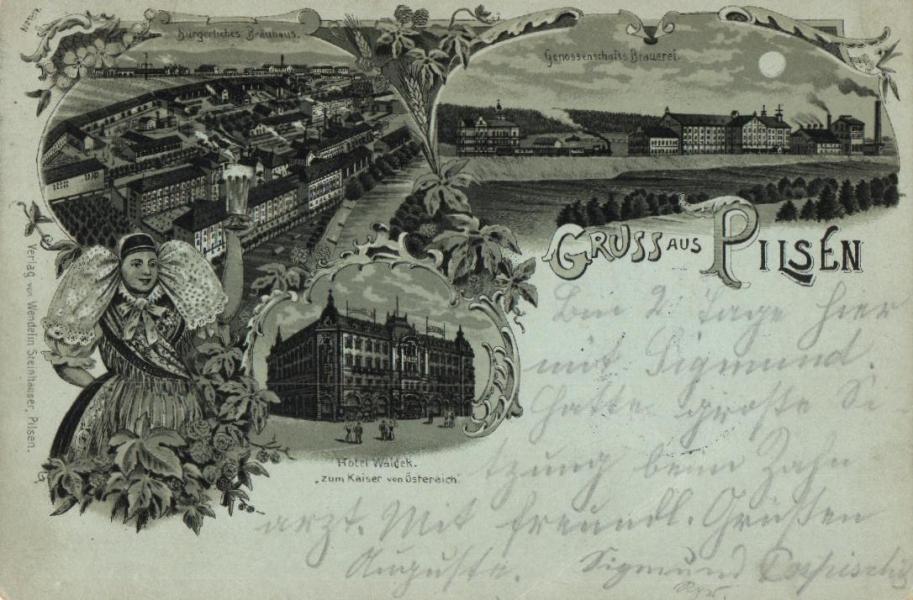 Bürgerliches Bräuhaus.
Genossenschafts Brauerei.
GRUSS AUS PILSEN
Verlag von Wendelin Steinhauser, Pilsen.
Hotel Waldek.
"zum Kaiser von Östereich"
Bin 2 Tage hier
mit Sigmund.
Hatte große Si-
tzung beim Zahn
arzt. Mit freundl. Grüßen
Auguste. Sigmund